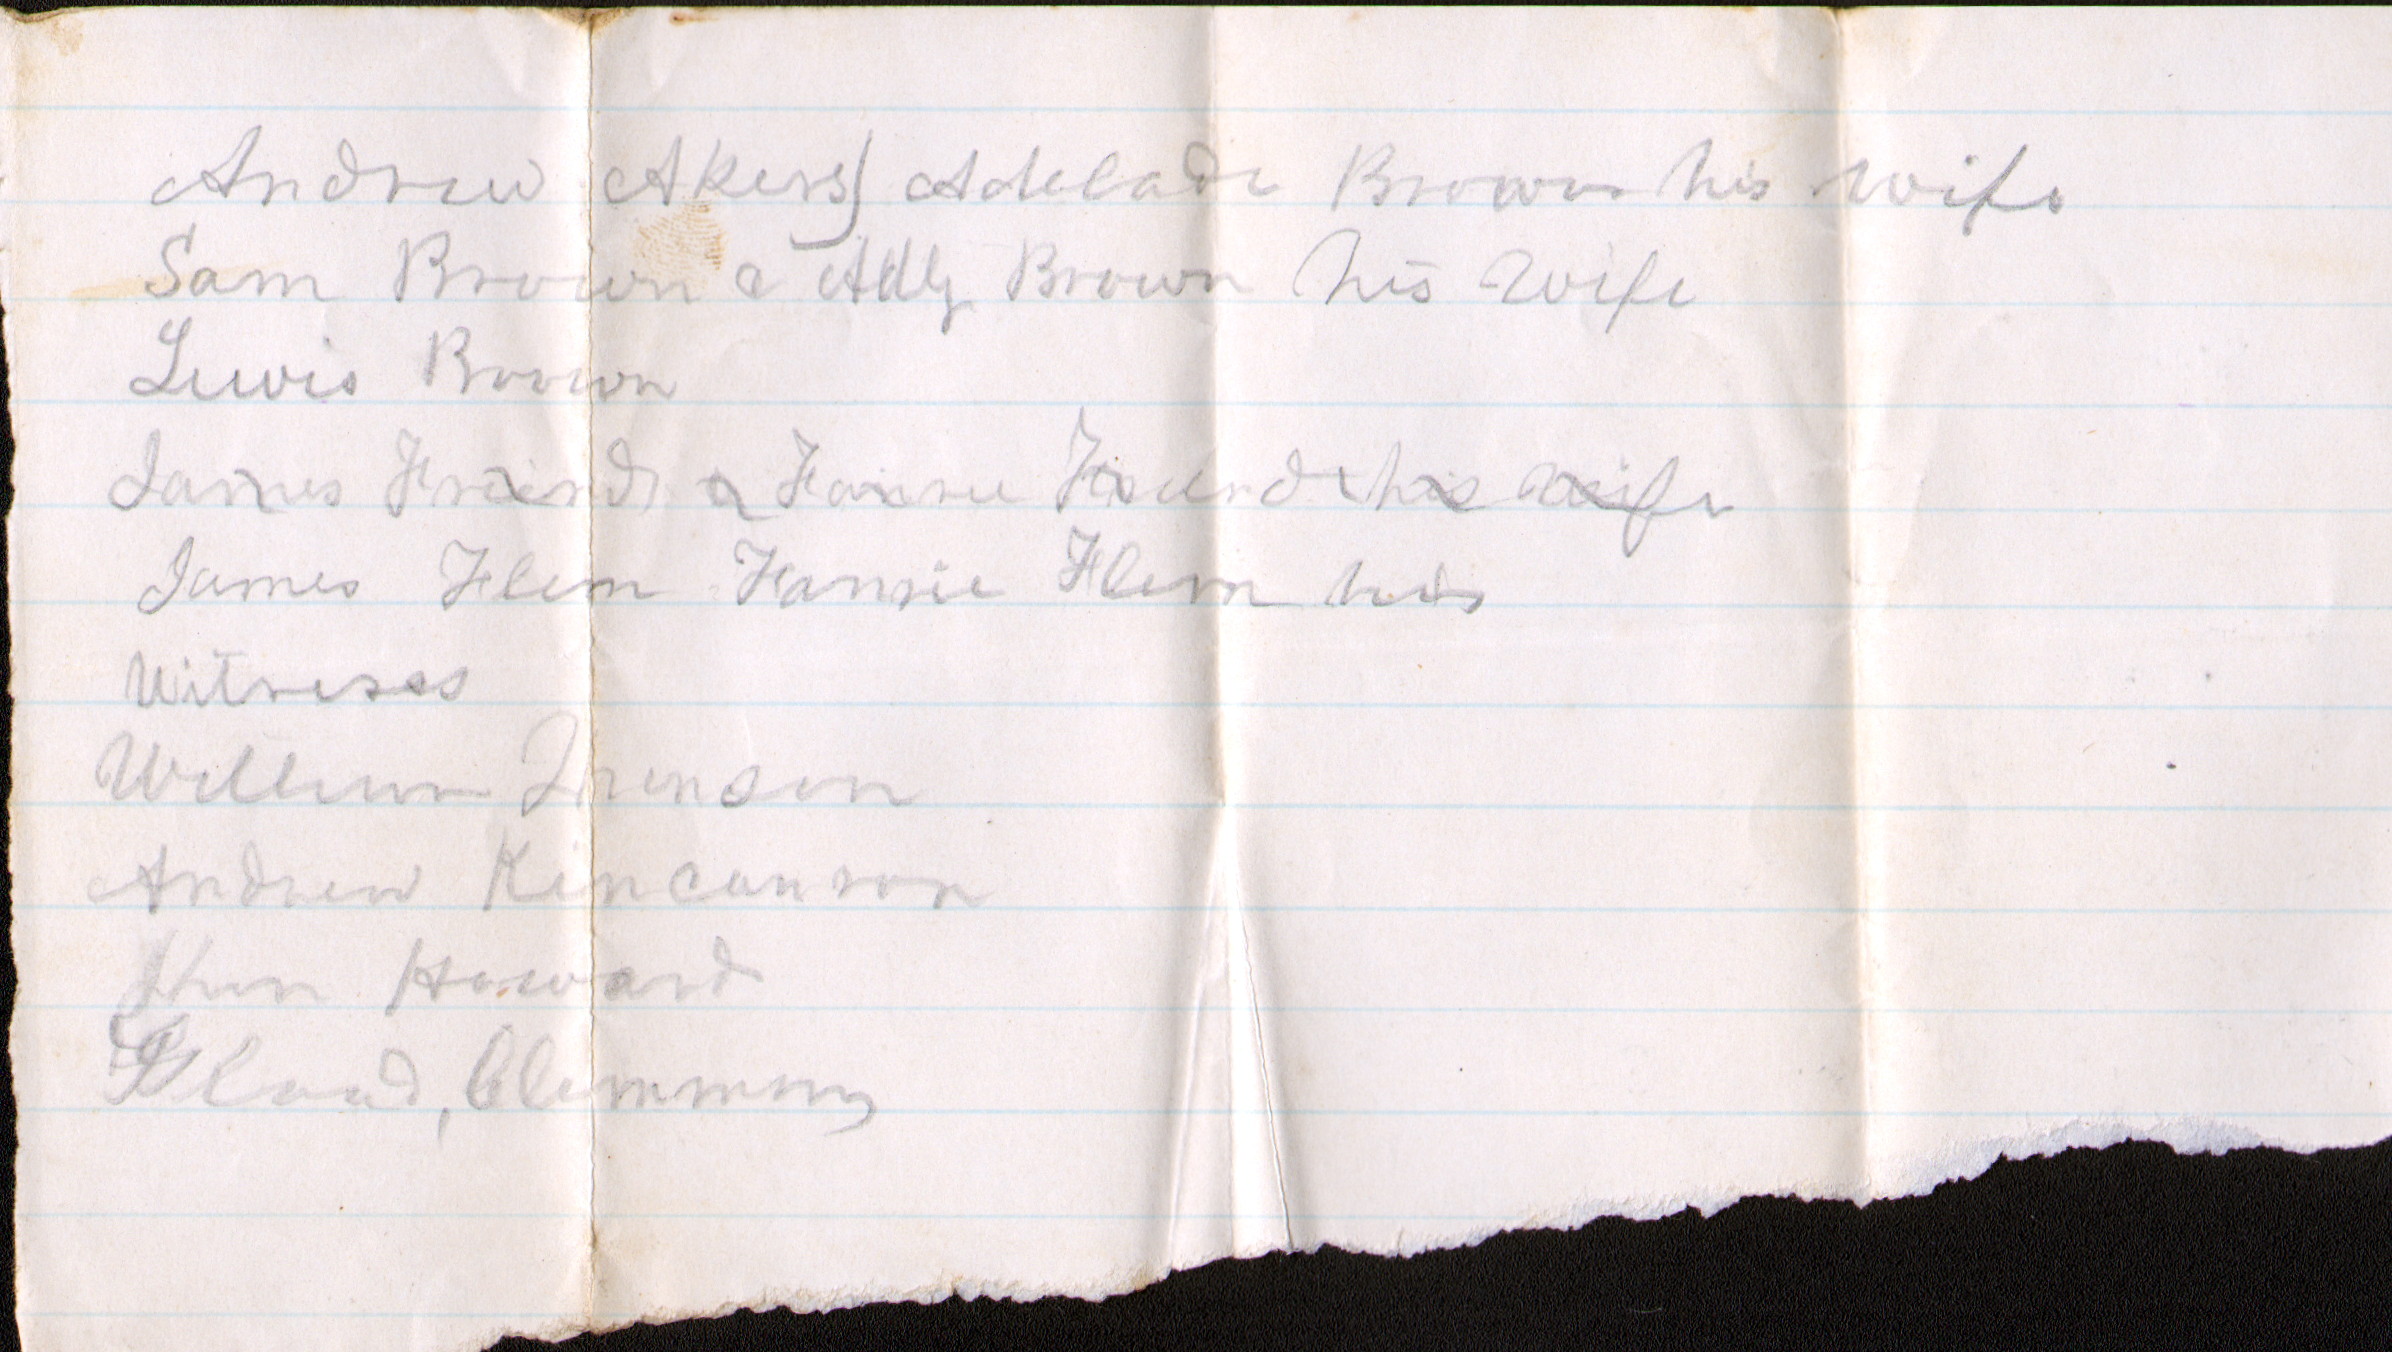 Andrew Akers) Adelade Brown his wife
Sam Brown & Ady Brown his wife
Lewis Brown
James Friend & Fannie Friend his wife
James Flem Fannie Flem his
Witness
William Jhonson
Andrew Kincannon
Howard
Fload, Clemmons